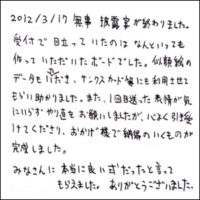 2012/3/17 無事 披露宴が終わりました。
受付で目立っていたのは なんといっても
作って いただいたボードでした。似顔絵の
データもいただき、サンクスカード等にも利用させて
もらい助かりました。また、1回目送った表情が気
にいらず やり直をお願いしましたが、心よく引き受
けてくださり、おかげ様で納得のいくものが
完成しました。
みなさんに 本当に良い式だったと言って
もらえました。ありがとうございました。